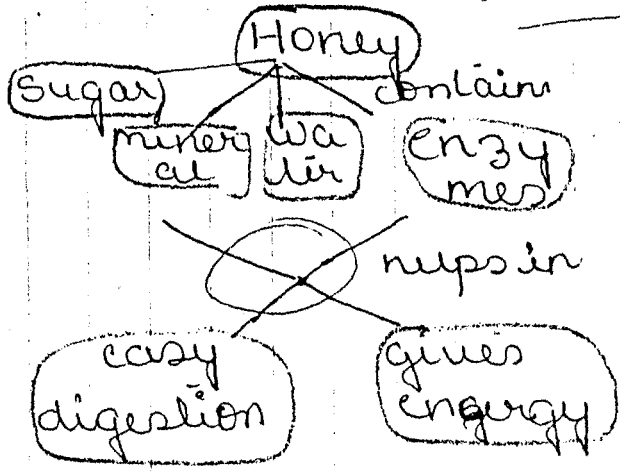 Honey
Sugar
contain
miner
al
wa
ter
enzy
mes
helps in
easy
digestion
gives
energy